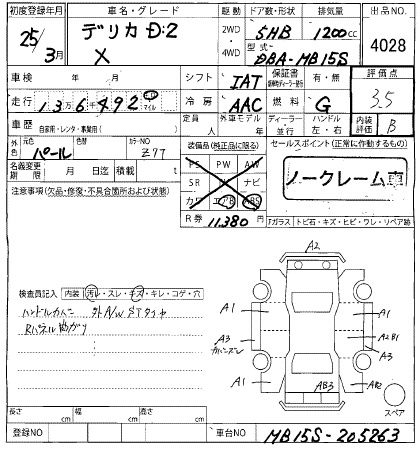 初度登録年月 車名・グレード 駆動 ドア数・形状 排気量 出品NO.
25/3月 デリカ D:2 X 2WD・4WD 5HB 1200cc 4028
型式 DBA-MB15S
車検 年 月 シフト IAT 保証書 有・無 評価点
走行 13万6千492 km マイル 冷房 AAC 燃料 G 3.5
車歴 自家用・レンタ・事業用( ) 定員 人 外車モデル 年 ディーラー・並行 ハンドル 左・右 内装評価 B
外装色 元色 パール 色替 カラーNO Z77 装備品(純正品に限る) セールスポイント(正常に作動するもの)
名義変更期限 月 日迄 積載 t PS PW AW ノークレーム車
注意事項(欠品・修復・不具合箇所および状態) SR ナビ
カワ エアB ABS
R券 11,380円 Fガラス トビ石・キズ・ヒビ・ワレ・リペア跡
A2
検査員記入 内装 汚レ・スレ・キズ・キレ・コゲ・穴
ハンドルカバー 外A/W STタイヤ
A1 A1
A3 A2B1
A1 AB3
スペア
長さ cm 幅 cm 高さ cm
登録NO 車台NO MB15S-205263